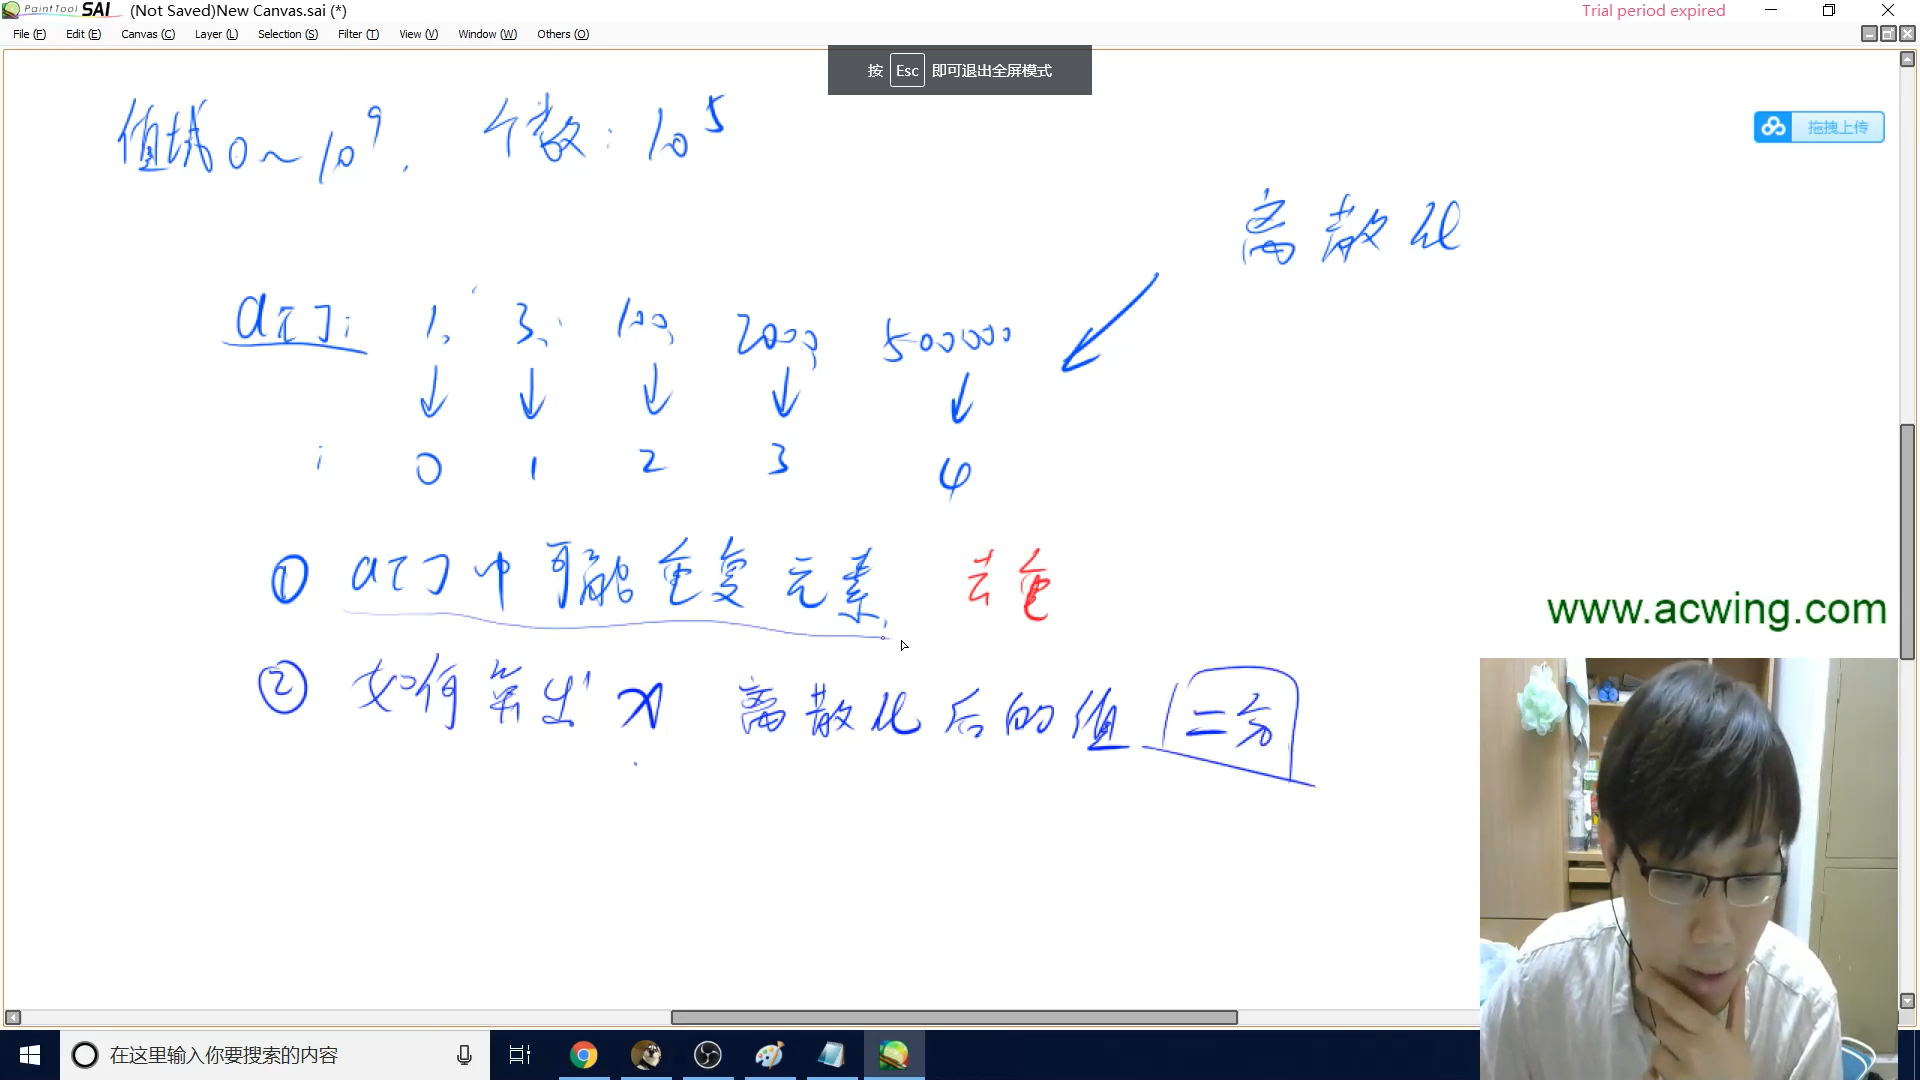 PaintTool SAI (Not Saved)New Canvas.sai (*) Trial period expired
File (F) Edit (E) Canvas (C) Layer (L) Selection (S) Filter (T) View (V) Window (W) Others (O)
按 Esc 即可退出全屏模式
值域0~10^9, 个数: 10^5
拖拽上传
离散化
a[]: 1, 3, 100, 2000, 500000
i 0 1 2 3 4
① a[]中可能重复元素, 去重
www.acwing.com
② 如何算出 x 离散化后的值 二分
在这里输入你要搜索的内容